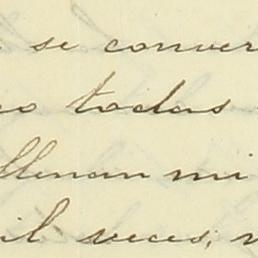 se conver
co todas
llenan mi
il veces,